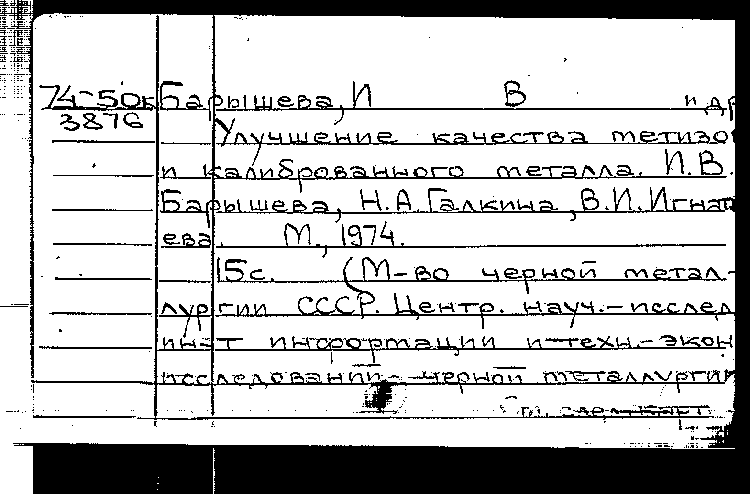 74-50к Барышева, И В и др
3876
Улучшение качества метизо
и калиброванного металла. И.В.
Барышева, Н.А. Галкина, В.И. Игнат
ева. М., 1974.
15с. (М-во черной метал-
лургии СССР. Центр. науч.-исслед
ин-т информации и техн.-экон
исследований черной металлургии
См. след. карт.